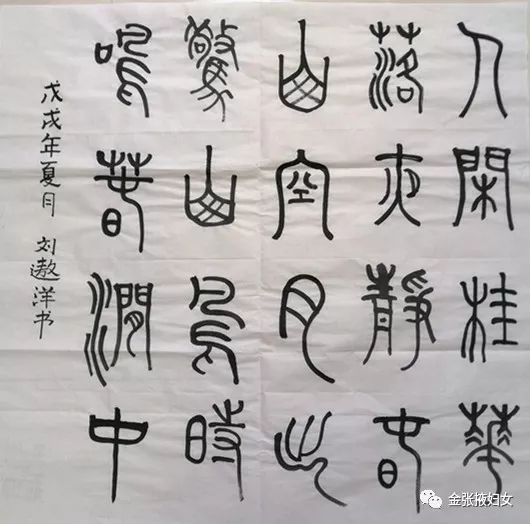 人閑桂華
落夜靜春
山空月出
驚山鳥時
鳴春澗中
戊戌年夏月 刘遨洋书
金张掖妇女